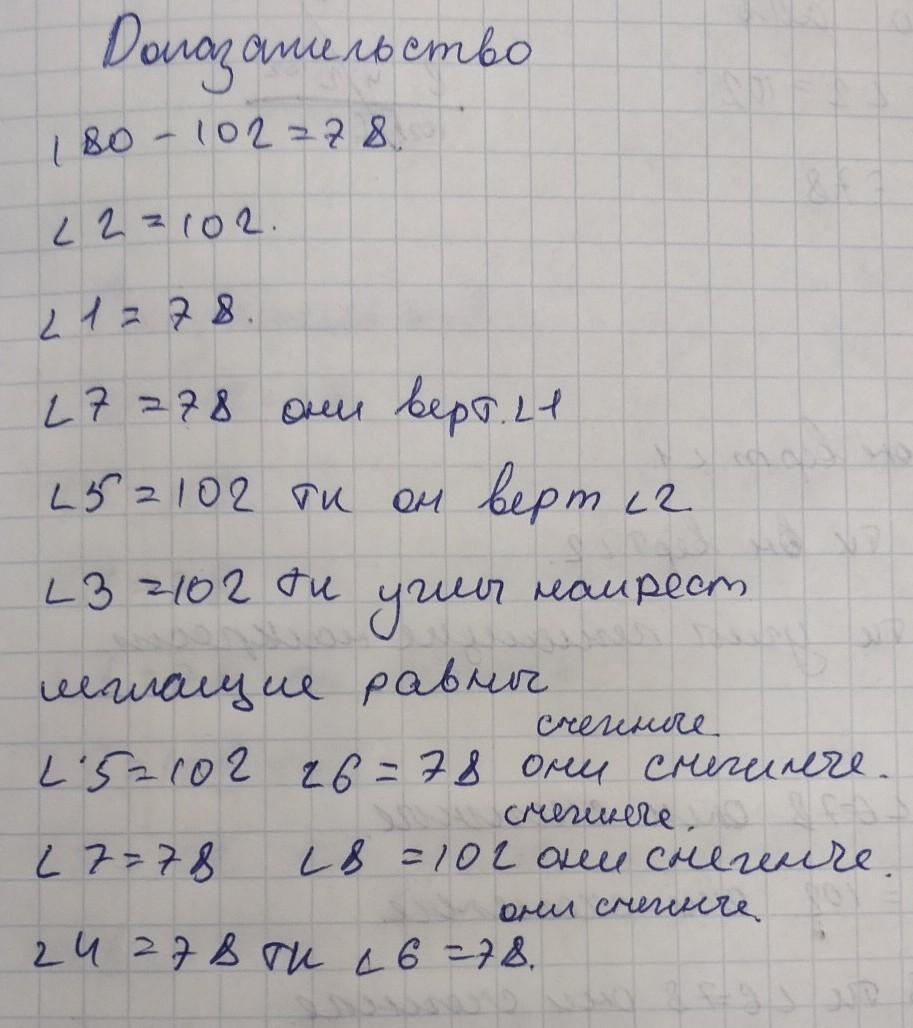 Доказательство
180 - 102 = 78.
∠2 = 102.
∠1 = 78.
∠7 = 78 они верт. ∠1
∠5 = 102 тк он верт ∠2
∠3 = 102 тк углы накрест
лежащие равны
смежные
∠5 = 102 ∠6 = 78 они смежные.
смежные.
∠7 = 78 ∠8 = 102 они смежные.
они смежные
∠4 = 78 тк ∠6 = 78.